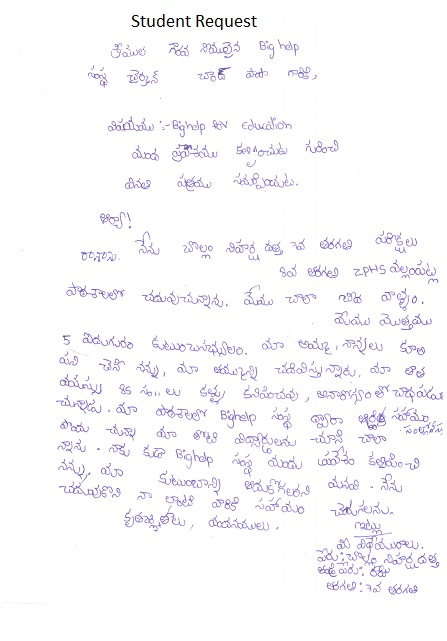 Student Request
గౌరవ నీయులైన Big help
సంస్థ చైర్మన్ చాంద్ పాషా గారికి,
విషయము :- Bighelp for education
నందు ప్రవేశము కల్పించుట గురించి
వినతి పత్రము సమర్పించుట.
ఆర్యా!
నేను బొల్లం నిహర్ష దత్త 7వ తరగతి పరీక్షలు
8వ తరగతి ZPHS వల్లాపట్ల
పాఠశాలలో చదువుచున్నాను. మేము చాలా బీద వాళ్ళం.
మేము మొత్తము
5 మందిమి కుటుంబసభ్యులం. మా అమ్మ, నాన్నలు కూలి
పని చేసి నన్ను, మా తమ్ముణ్ణి చదివిస్తున్నాడు. మా తాత
వయస్సు 85 సం..లు కళ్ళు కనిపించవు, అనారోగ్యంతో బాధపడు
చున్నాడు. మా పాఠశాలలో Bighelp సంస్థ ద్వారా ఆర్థిక సహాయం
పొందు చున్నా మా తోటి విద్యార్థులను చూసి చాలా సంతోషిస్తు
న్నాను. నాకు కూడా Bighelp సంస్థ యందు ప్రవేశం కల్పించి
నన్ను, మా కుటుంబాన్ని ఆదుకోగలరని మనవి. నేను
చదువుకొని నా లాంటి వారికి సహాయం చేయగలను.
కృతజ్ఞతలు, వందనములు.
ఇట్లు
మీ విధేయురాలు.
పేరు: బొల్లం నిహర్ష దత్త
తండ్రి పేరు: రవి
తరగతి : 7వ తరగతి